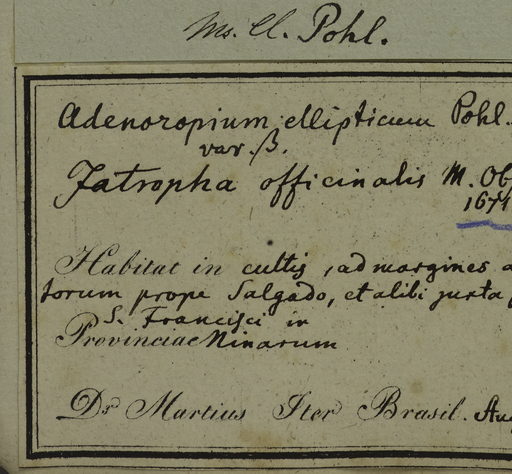 Ms. Cl. Pohl.
Adenoropium ellipticum Pohl.
var. β.
Jatropha officinalis M. Obs
1671
Habitat in cultis, ad margines a
torum prope Salgado, et alibi juxta
S. Francisci in
Provinciae Minarum
Dr Martius Iter Brasil. Aug